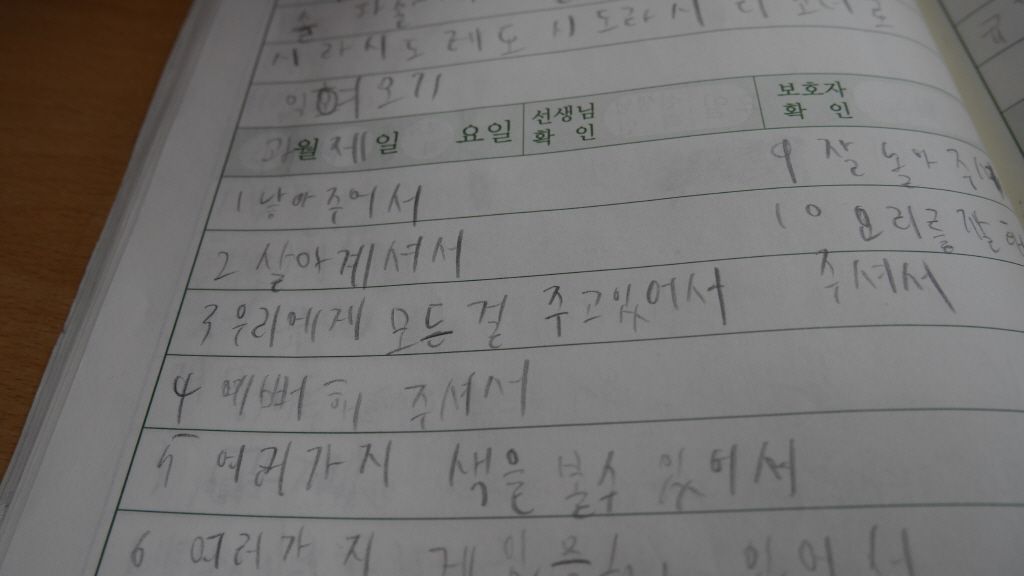 시라시도레도 시도라시
익여오기
월 일 요일 선생님 확인 보호자 확인
과제
1 낳아주어서
2 살아계셔서
3 우리에게 모든걸 주고있어서
4 예뻐해 주셔서
5 여러가지 색을 볼수 있어서
6 여러가지 있어서
9 잘 놀아
10 요리를잘
주셔서